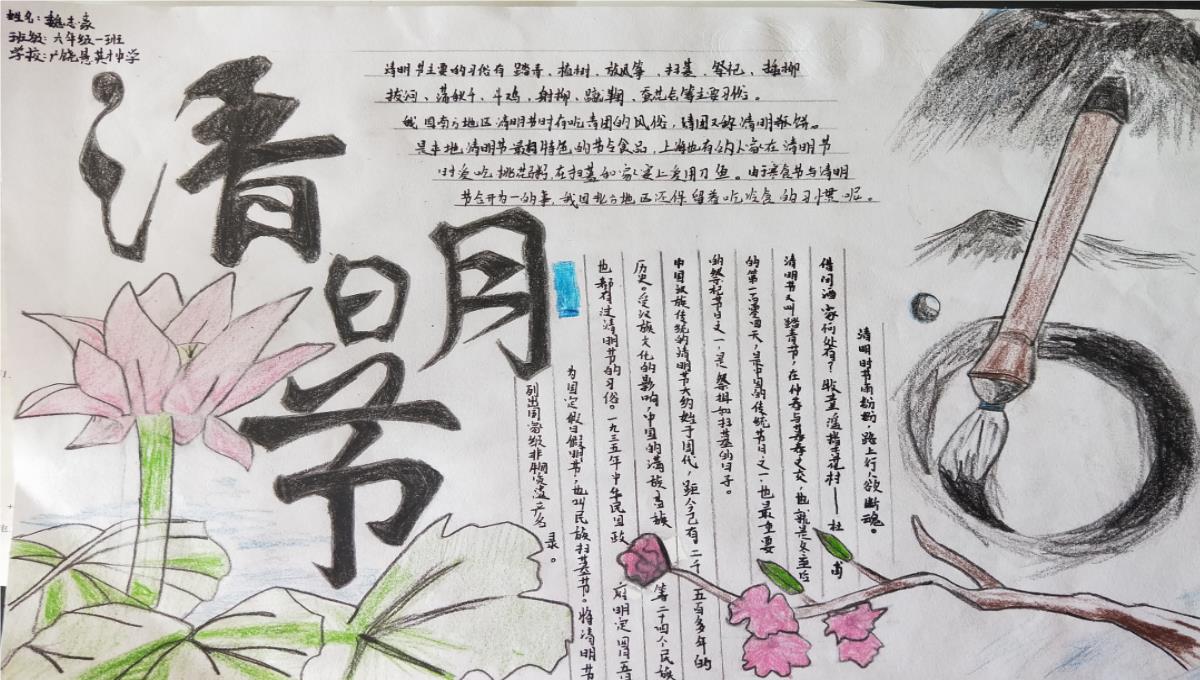 姓名:魏志豪
班级:六年级一班
学校:广饶县英才中学
清明节
清明节主要的习俗有踏青、植树、放风筝、扫墓、祭祀、插柳
拔河、荡秋千、斗鸡、射柳、蹴鞠、蚕花会等主要习俗。
我国南方地区清明节时有吃青团的风俗,青团又称清明
是本地清明节最具特色的节令食品,上海也有的人家在清明节
时爱吃桃花粥,在扫墓和家宴上爱用刀鱼。由于寒食节与清明
节合并为一的事,我国北方地区还保留着吃冷食的习惯呢。
清明时节雨纷纷,路上行人欲断魂。
借问酒家何处有?牧童遥指杏花村——杜甫
清明节又叫踏青节,在仲春与暮春之交,也就是冬至后
的第一百零四天,是中国的传统节日之一,也是最重要
的祭祀节日之一,是祭祖和扫墓的日子。
中国汉族传统的清明节大约始于周代,距今已有二千五百多年的
历史。受汉族文化的影响,中国的满族 族 等二十四个民族
也都有过清明节的习俗。一九三五年中华民国政府明定四月五日
为国定假日清明节,也叫民族扫墓节。将清明节
列出国家级非物质遗产名录。